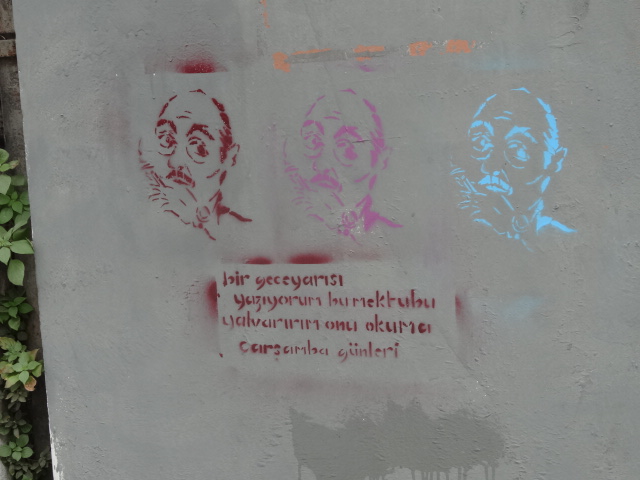 bir geceyarısı
yazıyorum bu mektubu
yalvarırım onu okuma
çarşamba günleri